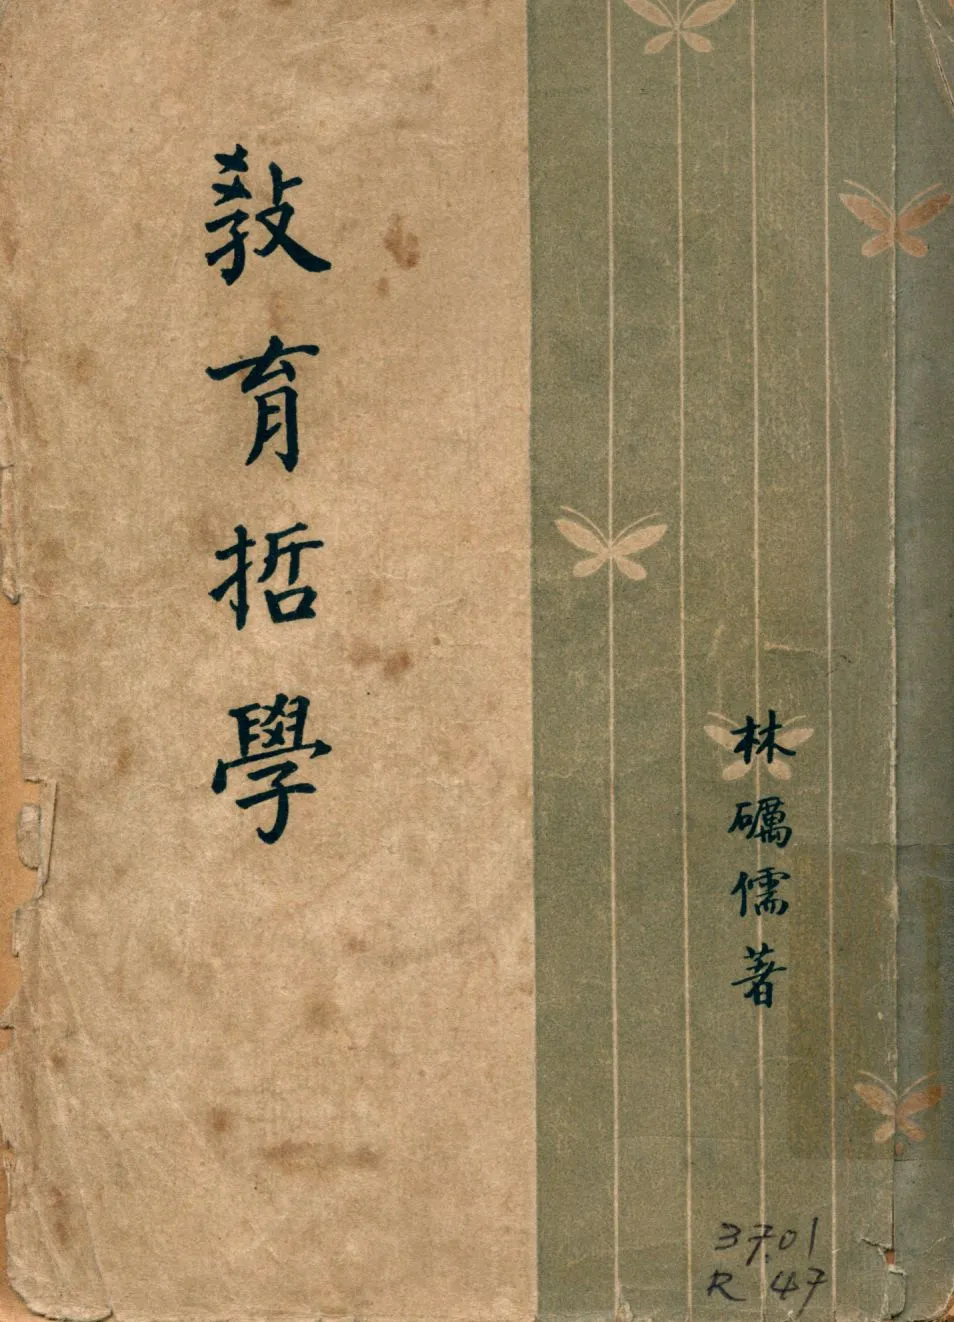 教育哲學
林礪儒著
370.1
R 47